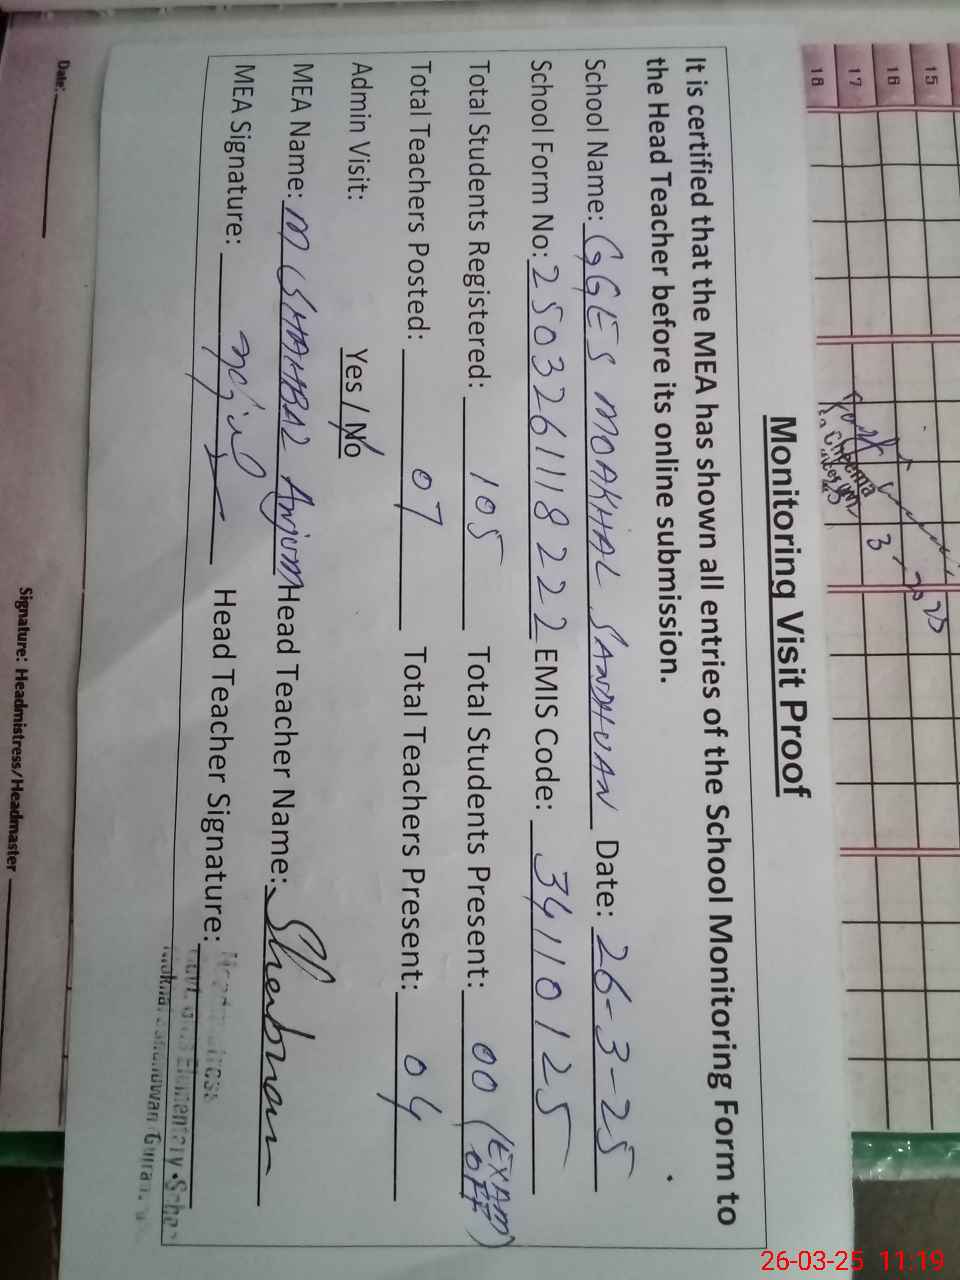 15
16
17
18
Monitoring Visit Proof
It is certified that the MEA has shown all entries of the School Monitoring Form to
the Head Teacher before its online submission.
School Name: GGES MOAKHAL SANDHUAN Date: 26-3-25
School Form No: 2503261118222 EMIS Code: 34110125
Total Students Registered: 105 Total Students Present: 00 (EXAM OFF)
Total Teachers Posted: 07 Total Teachers Present: 04
Admin Visit: Yes / No
MEA Name: M SHAHBAZ Anjum Head Teacher Name:
MEA Signature: Head Teacher Signature:
Date: Signature: Headmistress/Headmaster
26-03-25 11:19